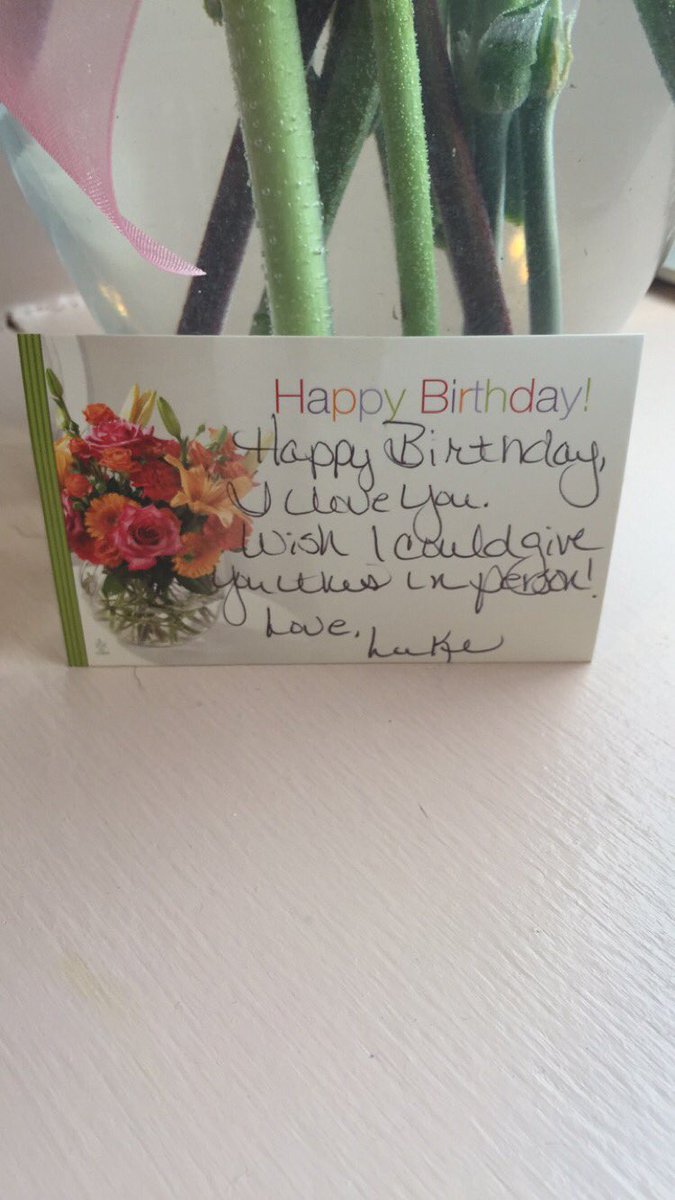 Happy Birthday!
Happy Birthday,
I Love You.
Wish I could give
you this in person!
Love,
Luke